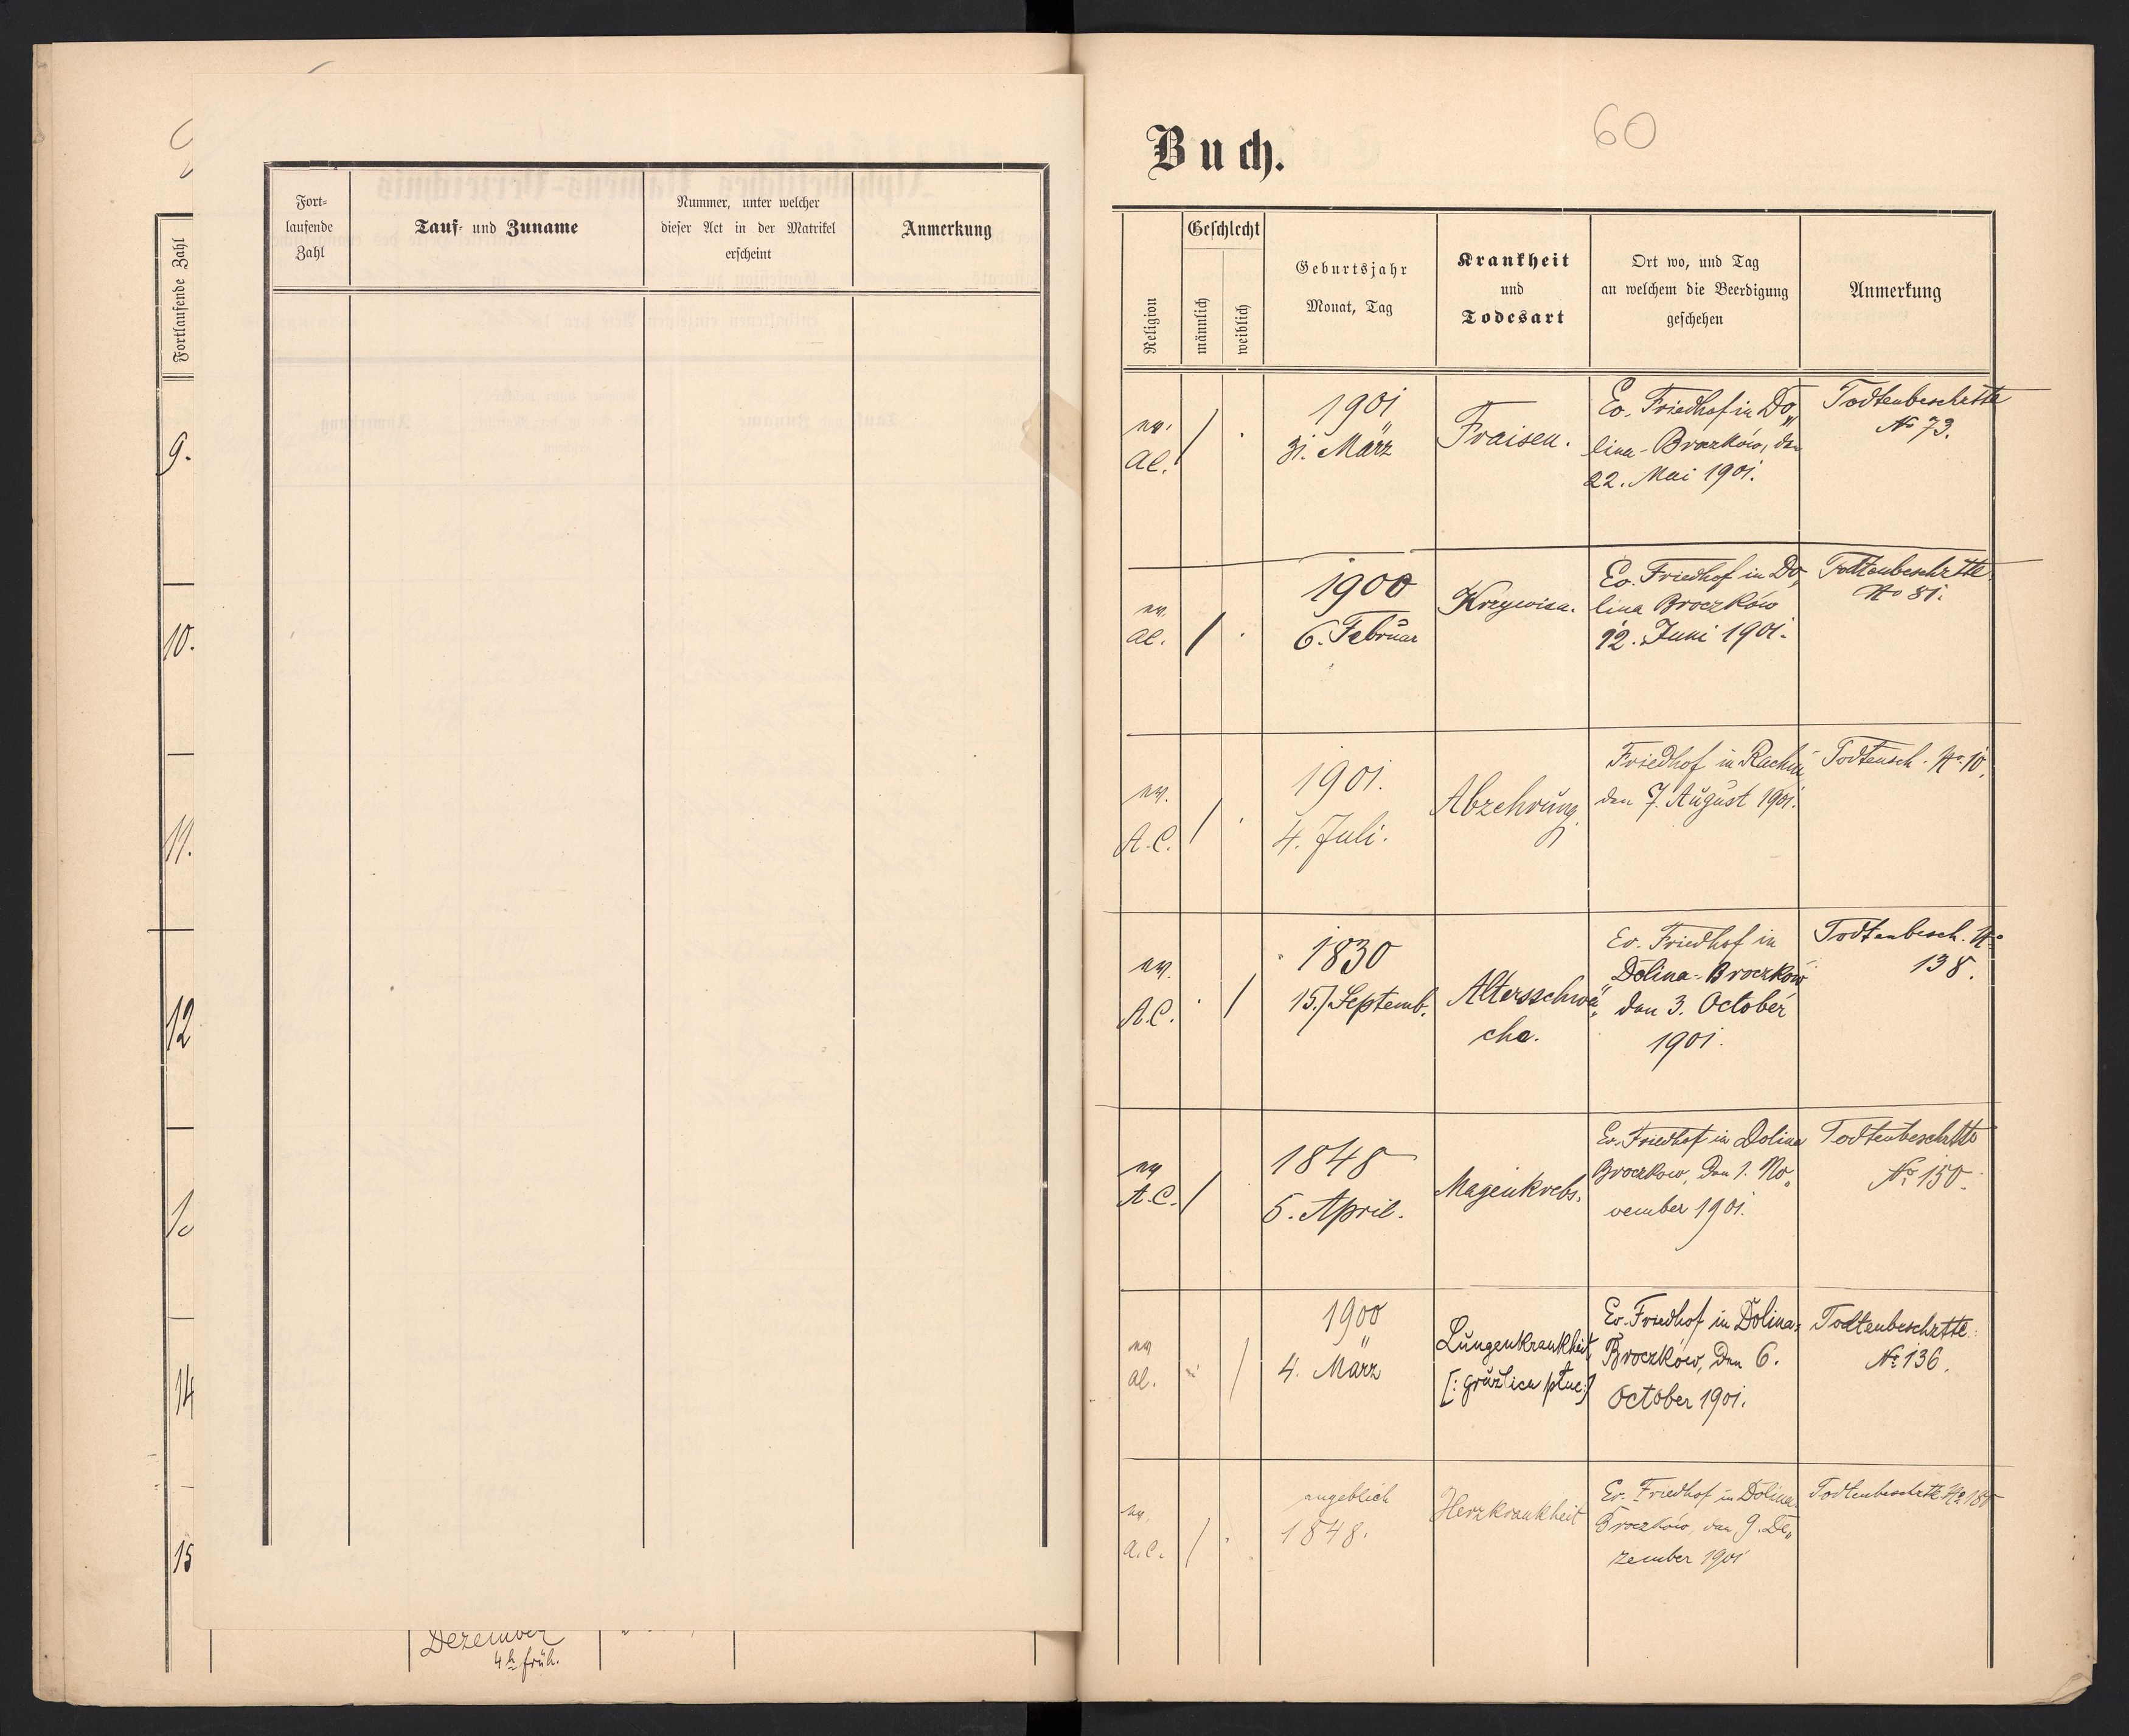 Fortlaufende Zahl
9.
10.
11.
12
14
15
Fort-
laufende
Zahl
Tauf- und Zuname
Nummer, unter welcher
dieser Act in der Matrikel
erscheint
Anmerkung
Dezember
4h früh.
60
Buch.
Religion
Geschlecht
männlich
weiblich
Geburtsjahr
Monat, Tag
Krankheit
und
Todesart
Ort wo, und Tag
an welchem die Beerdigung
geschehen
Anmerkung
ev.
AC.
/
1901
31. März
Fraisen.
Ev. Friedhof in Do„
lina-Broczków, den
22. Mai 1901.
Todtenbeschrtte
No 73.
ev.
AC.
/
1900
6. Februar
Krzywica.
Ev. Friedhof in Do„
lina Broczków
12. Juni 1901.
Todtenbeschrtte
No 81.
ev.
A.C.
/
1901.
4. Juli.
Abzehrung.
Friedhof in Rachin
den 7. August 1901.
Todtensch. No 10.
ev.
A.C.
/
1830
15./Septemb.
Altersschwä„
che.
Ev. Friedhof in
Dolina-Broczków
den 3. October
1901.
Todtenbesch. No
138.
ev
A.C.
/
1848
5. April.
Magenkrebs.
Ev. Friedhof in Dolina
Broczkow, den 1. No„
vember 1901.
Todtenbeschrtte
No 150.
ev
AC.
/
1900
4. März
Lungenkrankheit
[: gruźlica płuc:]
Ev. Friedhof in Dolina-
Broczków, den 6.
October 1901.
Todtenbeschrtte
No 136.
ev.
A.C.
/
angeblich
1848.
Herzkrankheit
Ev. Friedhof in Dolina-
Broczków, den 9. De„
zember 1901
Todtenbeschrtte No